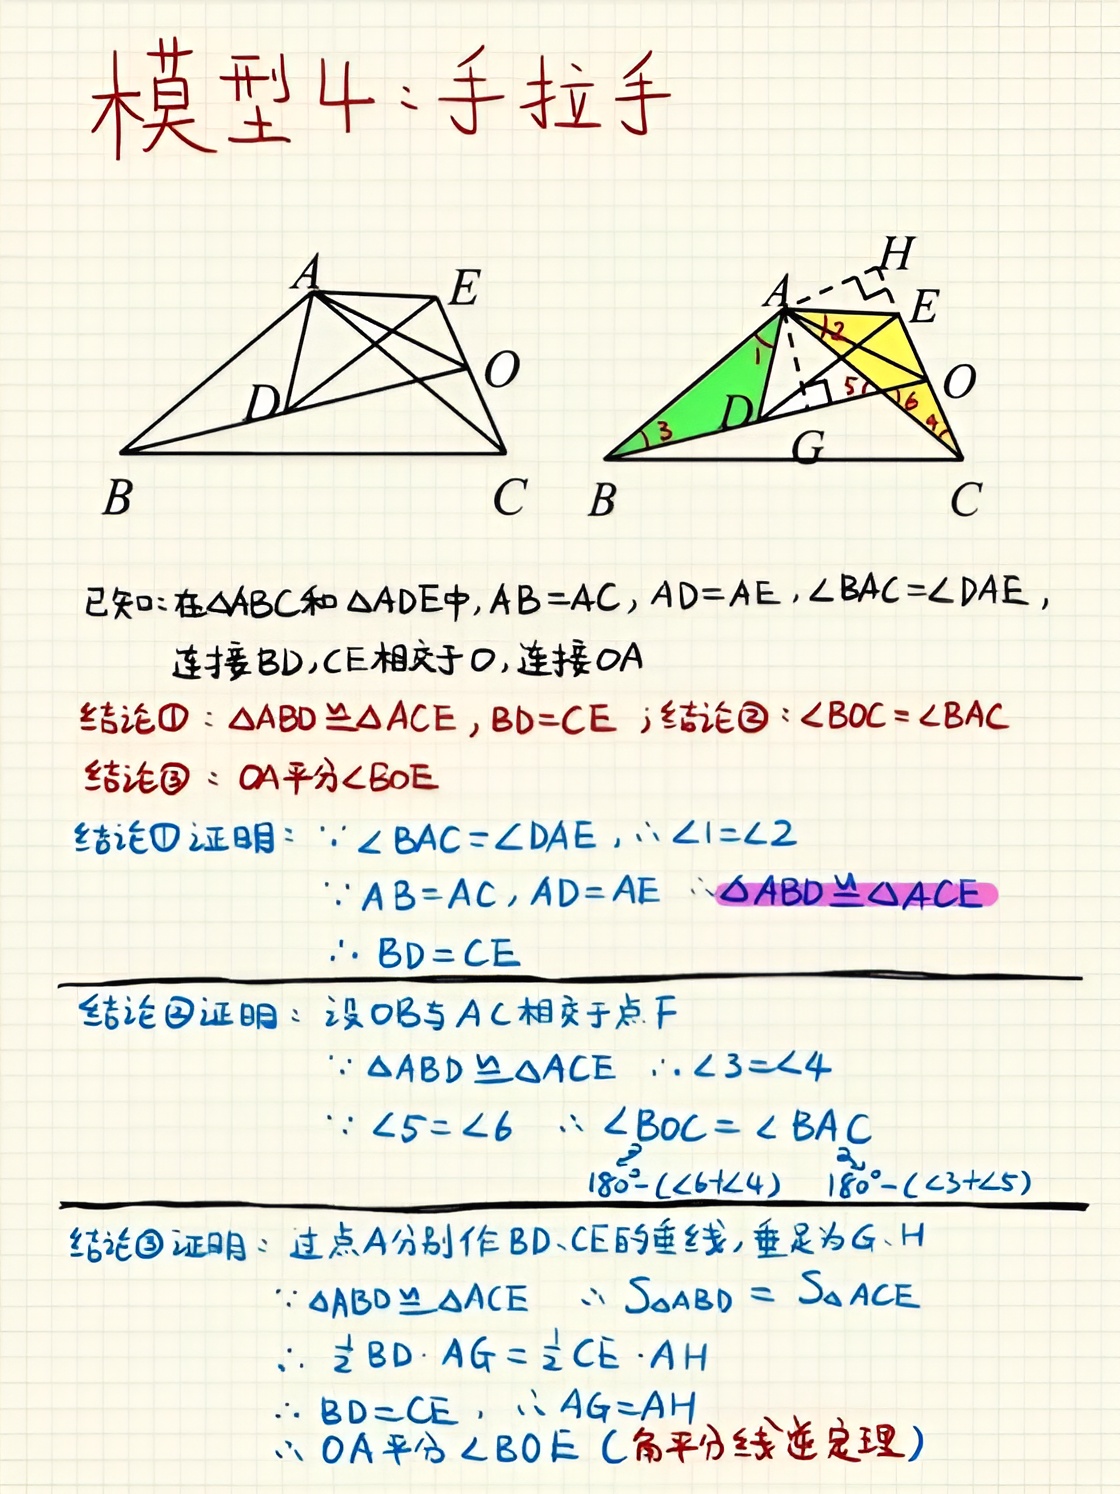 模型4:手拉手
A E O D B C
H A E 2 1 5 O 6 D 3 4 G B C
已知:在△ABC和△ADE中,AB=AC,AD=AE,∠BAC=∠DAE,
连接BD,CE相交于O,连接OA
结论①:△ABD≌△ACE,BD=CE;结论②:∠BOC=∠BAC
结论③:OA平分∠BOE
结论①证明:∵∠BAC=∠DAE,∴∠1=∠2
∵AB=AC,AD=AE ∴△ABD≌△ACE
∴BD=CE
结论②证明:设OB与AC相交于点F
∵△ABD≌△ACE ∴∠3=∠4
∵∠5=∠6 ∴∠BOC=∠BAC
180°-(∠6+∠4) 180°-(∠3+∠5)
结论③证明:过点A分别作BD、CE的垂线,垂足为G、H
∵△ABD≌△ACE ∴S△ABD=S△ACE
∴½BD·AG=½CE·AH
∴BD=CE,∴AG=AH
∴OA平分∠BOE(角平分线逆定理)